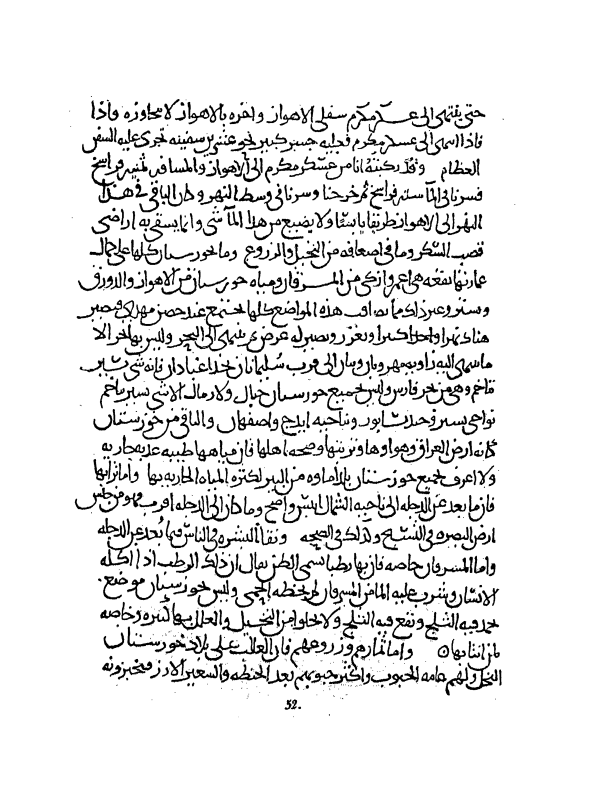 حتى ينتهى الى عسكر مكرم سفلى الاهواز واخره بالاهواز لا يجاوزه واذا
فاذا انتهى الى عسكر مكرم فعليه جسر كبير نحو عشرين سفينه تجرى عليه السفن
العظام وقد ركبته انا من عسكر مكرم الى الاهواز والمسافه ثمنيه فراسخ
فسرنا فى الما سته فراسخ ثم خرجنا وسرنا فى وسط النهر وكان الباقى فى هذا
النهر الى الاهواز طريقا يابسا ولا يضيع من هذا الما شى وانما يسقى به اراضى
قصب السكر وما فى اضعافه من النخيل والزروع وما بخورستان كلها على كمال
عمارتها بقعه هى اعمر وازكى من المسرقان ومياه خورستان من الاهواز والدورق
وتستر وغير ذلك مما يصاقب هذه المواضع كلها تجتمع عند حصن مهدى فيصير
هناك نهرا واحدا كبيرا ويغزر ويصير له عرض ثم ينتهى الى البحر وليس بها بحر الا
ما ينتهى اليه زاويه مهروبان الى قرب سليمانان بحذا عبادان فانه شى يسير
تاخم وهى من بحر فارس وليس بجميع خورستان جبال ولا رمال الا شى يسير يتاخم
نواحى تستر وجندىسابور وناحيه ايدج واصفهان والباقى من خورستان
كانه ارض العراق وهواوها وتربتها وصحه اهلها فان مياهها طيبه عذبه جاريه
ولا اعرف بجميع خورستان بلدا ماوه من البير لكثره المياه الجاريه بها واما ترابها
فان ما بعد عن الدجله الى ناحيه الشمال ايبس واصح وما كان الى الدجله اقرب فهو من جنس
ارض البصره فى التسبخ وكذلك فى الصحه ونقا البشره فى الناس فيما بعد عن الدجله
واما المسرقان خاصه فان بها رطبا يسمى الطن يقال ان ذلك الرطب اذا اكله
الانسان وشرب عليه الما من المسرقان لم تخطه الحمى وليس بخورستان موضع
يجمد فيه الثلج ويقع فيه الثلج ولا يخلوا من النخيل والعلل بها كثيره وخاصه
لمن انتابها ه واما ثمارهم وزروعهم فان الغالب على بلاد خورستان
النخل ولهم عامه الحبوب واكثر حبوبهم بعد الحنطه والشعير الارز فيخبزونه
52.